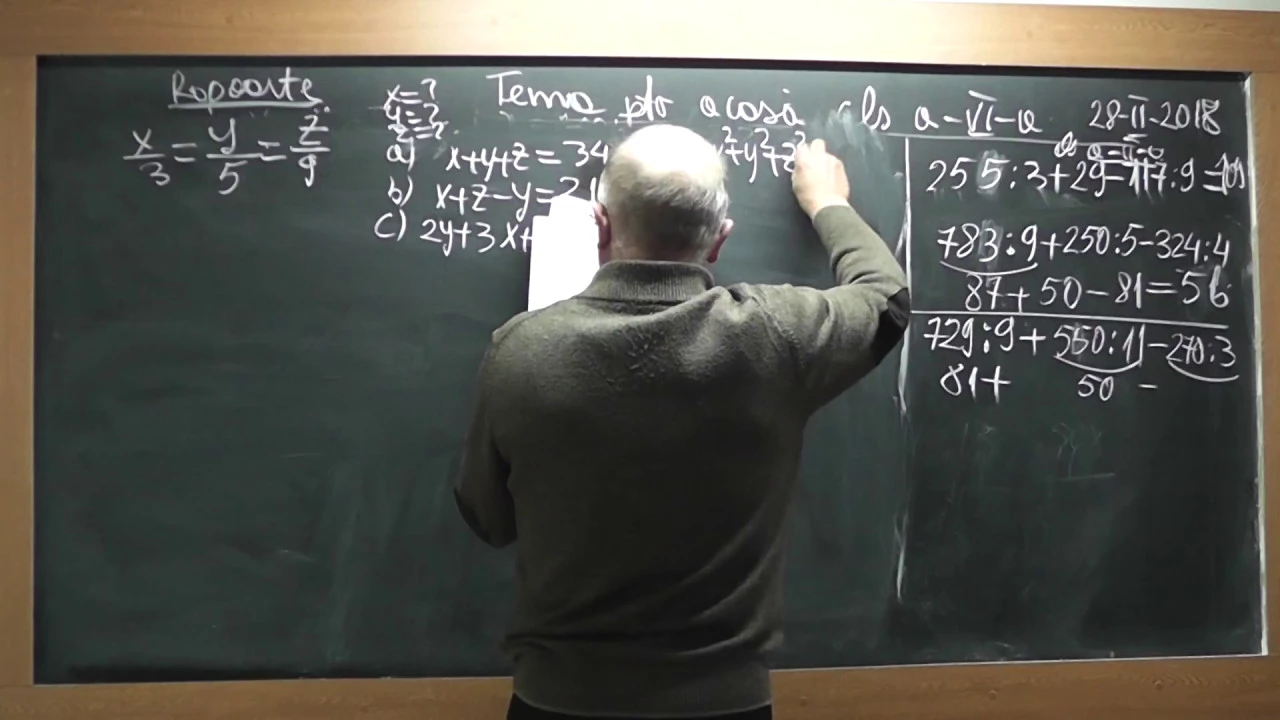 Rapoarte
x/3 = y/5 = z/9
x=?
y=?
z=?
Tema ptr acasă cls a-VI-a 28-II-2018
a) x+y+z=34
b) x+z-y=21
c) 2y+3x+
y²+y²+z²
cls a-II-a
255:3+29-117:9=101
783:9+250:5-324:4
87+50-81=56
729:9+550:11-270:3
81+ 50 -